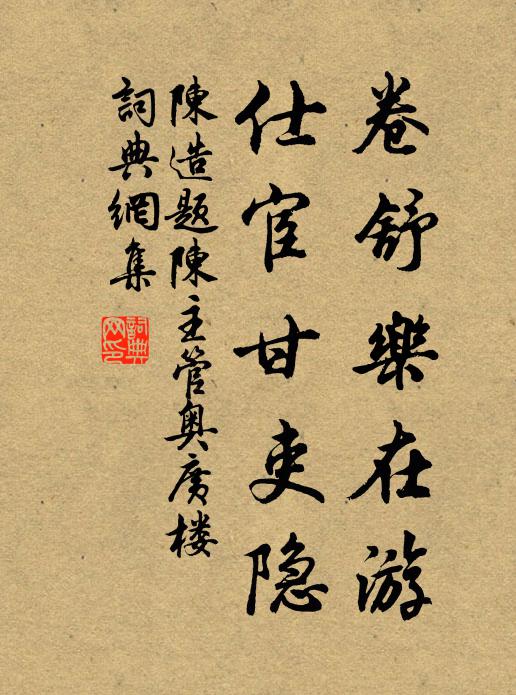 卷舒樂在游
仕宦甘吏隐
陳造題陳主管奥廣楼
詞典網集
詞典网印